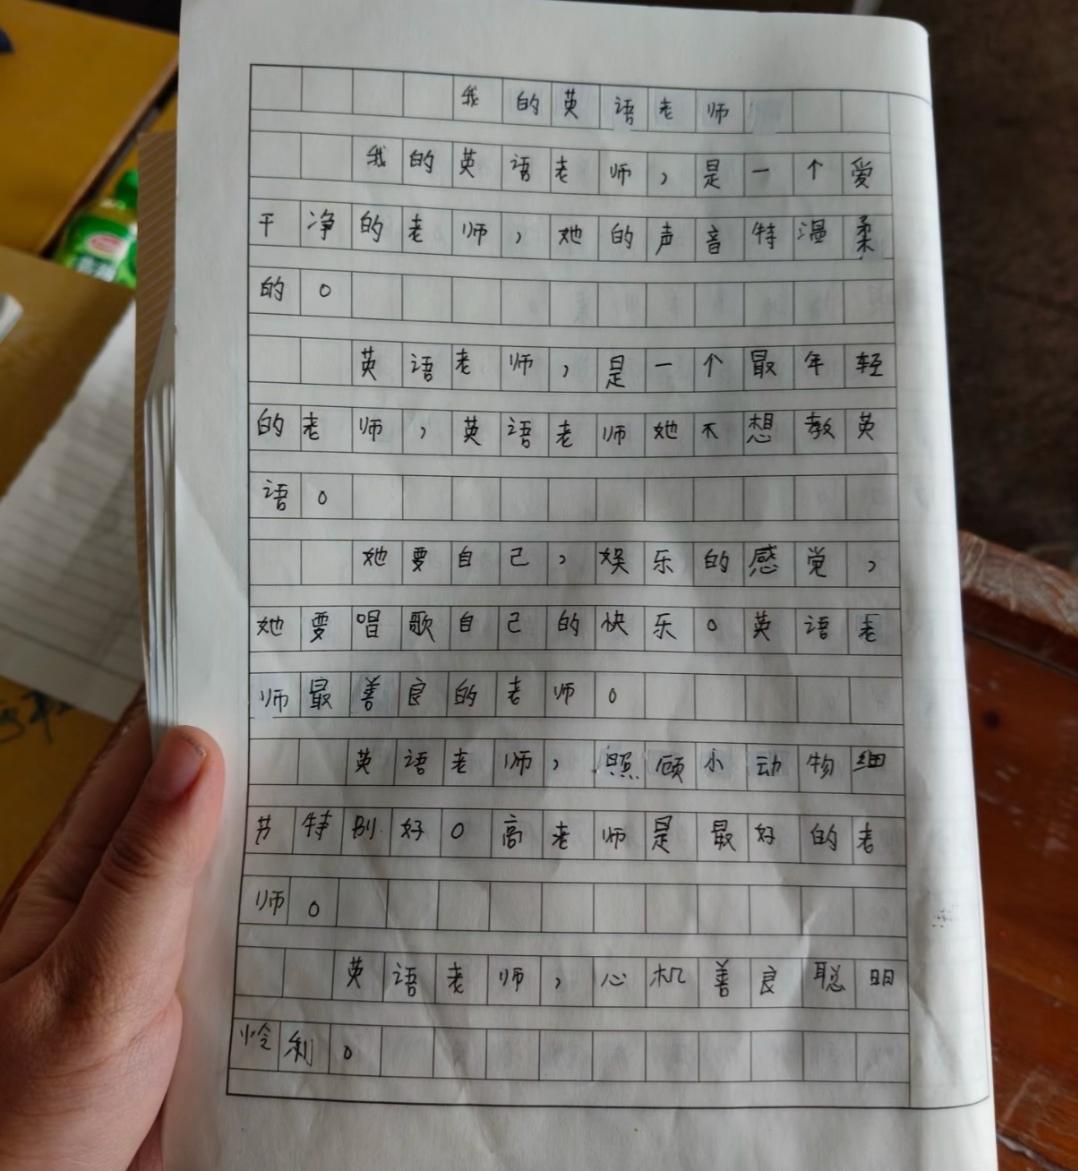 我的英语老师
我的英语老师,是一个爱
干净的老师,她的声音特温柔
的。
英语老师,是一个最年轻
的老师,英语老师她不想教英
语。
她要自己,娱乐的感觉,
她要唱歌自己的快乐。英语老
师最善良的老师。
英语老师,照顾小动物细
节特别好。高老师是最好的老
师。
英语老师,心机善良聪明
怜利。